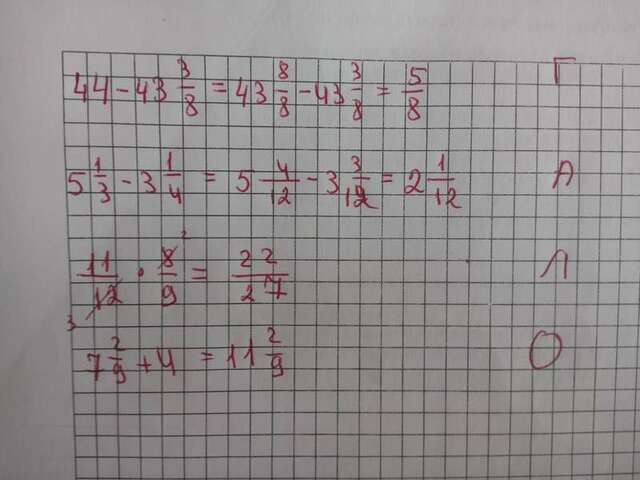 44 - 43 3/8 = 43 8/8 - 43 3/8 = 5/8 Г
5 1/3 - 3 1/4 = 5 4/12 - 3 3/12 = 2 1/12 А
11/12 · 8/9 = 22/27 Л
7 2/9 + 4 = 11 2/9 О